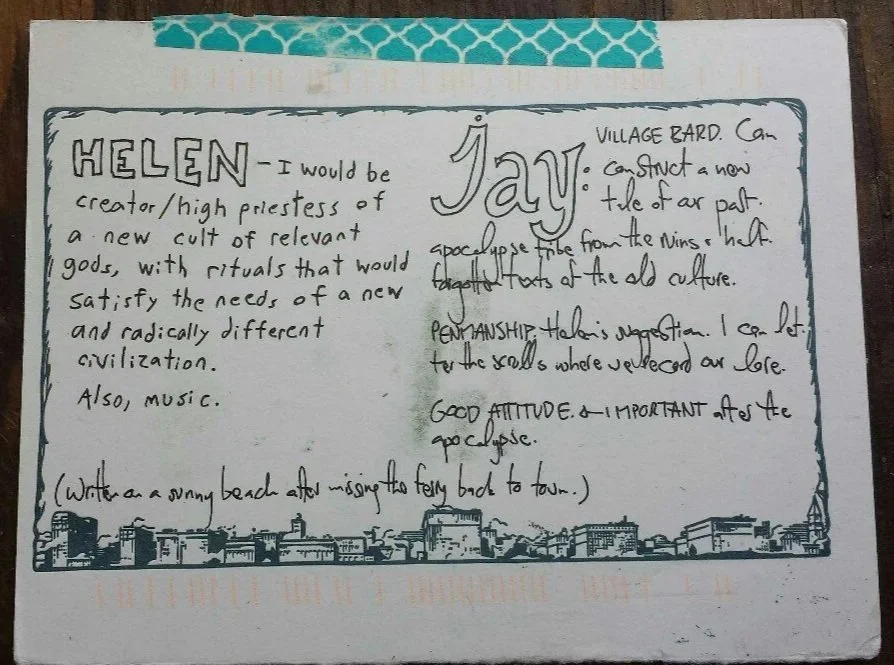 HELEN - I would be
creator/high priestess of
a new cult of relevant
gods, with rituals that would
satisfy the needs of a new
and radically different
civilization.
Also, music.
jay: VILLAGE BARD. Can
construct a new
tale of our past.
apocalypse tribe from the ruins & half.
forgotten texts of the old culture.
PENMANSHIP: Helen's suggestion. I can let.
ter the scrolls where we record our lore.
GOOD ATTITUDE. ← IMPORTANT after the
apocalypse.
(Written on a sunny beach after missing the ferry back to town.)